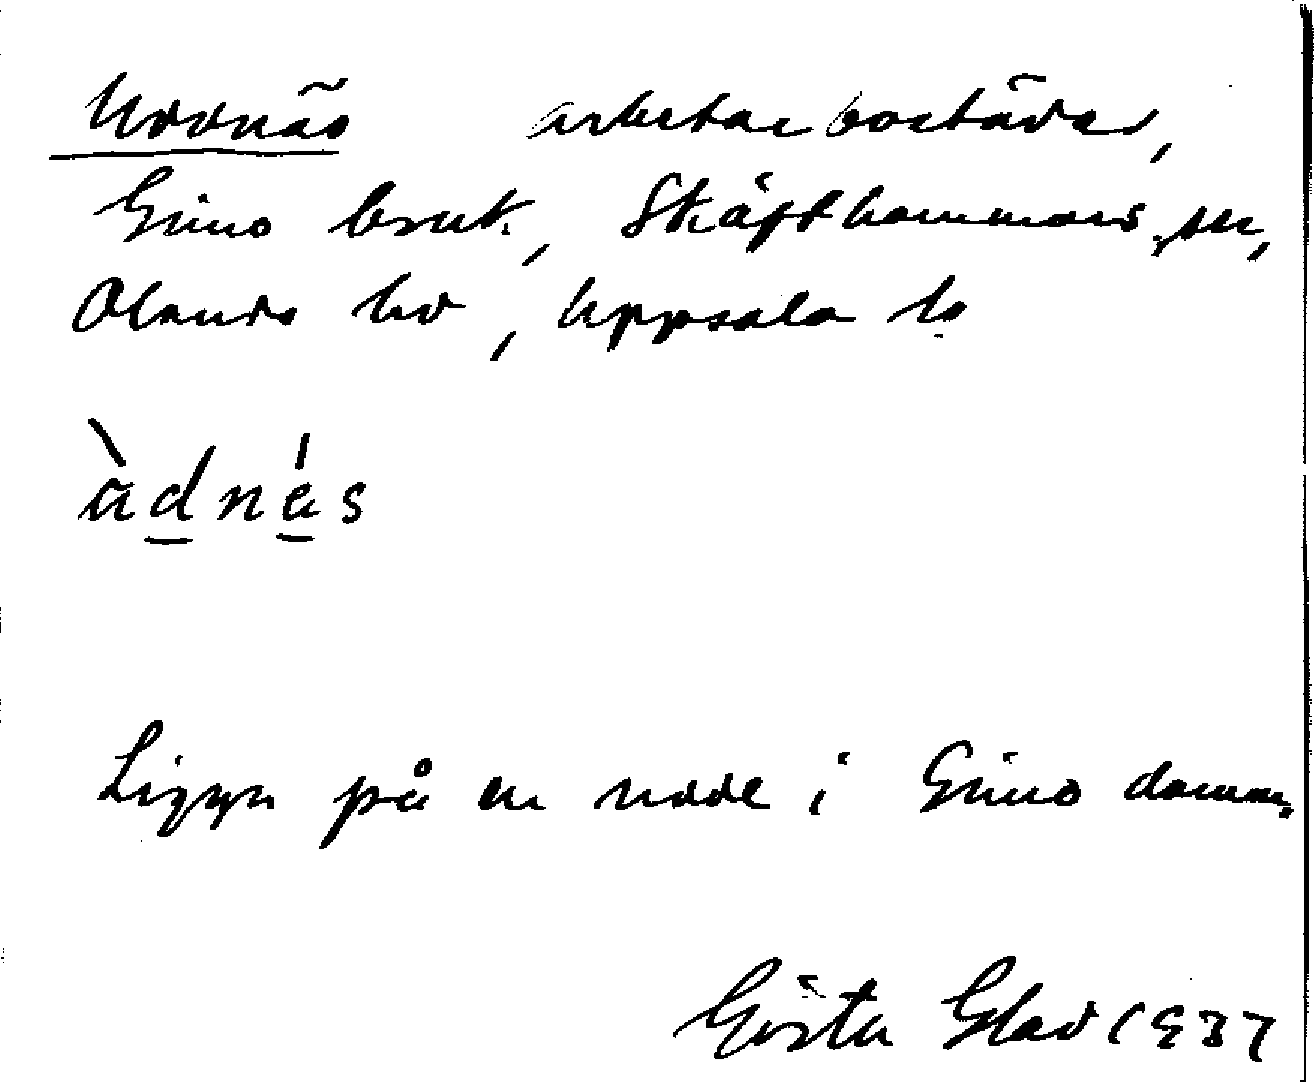 Uddnäs arbetarbostäder,
Gimo bruk, Skäfthammars sn,
Olands hd, Uppsala lä
àdnás
Ligger på en udde i Gimo damm.
Gösta Glad 1937